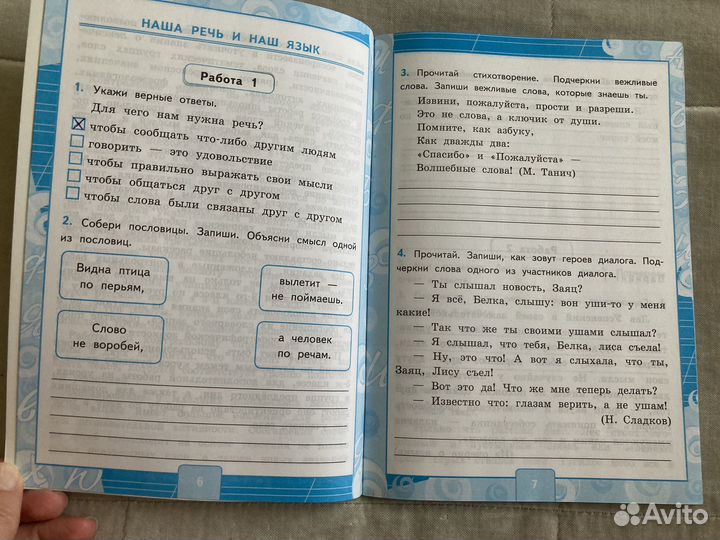 НАША РЕЧЬ И НАШ ЯЗЫК
Работа 1
1. Укажи верные ответы.
Для чего нам нужна речь?
чтобы сообщать что-либо другим людям
говорить — это удовольствие
чтобы правильно выражать свои мысли
чтобы общаться друг с другом
чтобы слова были связаны друг с другом
2. Собери пословицы. Запиши. Объясни смысл одной
из пословиц.
Видна птица
по перьям,
вылетит —
не поймаешь.
Слово
не воробей,
а человек
по речам.
6
3. Прочитай стихотворение. Подчеркни вежливые
слова. Запиши вежливые слова, которые знаешь ты.
Извини, пожалуйста, прости и разреши.
Это не слова, а ключик от души.
Помните, как азбуку,
Как дважды два:
«Спасибо» и «Пожалуйста» —
Волшебные слова! (М. Танич)
4. Прочитай. Запиши, как зовут героев диалога. Под-
черкни слова одного из участников диалога.
— Ты слышал новость, Заяц?
— Я всё, Белка, слышу: вон уши-то у меня
какие!
— Так что же ты своими ушами слышал?
— Я слышал, что тебя, Белка, лиса съела!
— Ну, это что! А вот я слыхала, что ты,
Заяц, Лису съел!
— Вот это да! Что же мне теперь делать?
— Известно что: глазам верить, а не ушам!
(Н. Сладков)
7
Avito